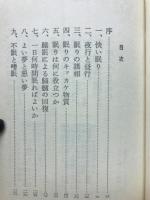 目次
序
一、快い眠り
二、夜行と昼行
三、眠りの諸相
四、眠りのキッカケ物質
五、眠りは何に役立つか
六、睡眠による脳髄の回復
七、一日何時間眠ればよいか
八、よい夢と悪い夢
九、不眠と嗜眠